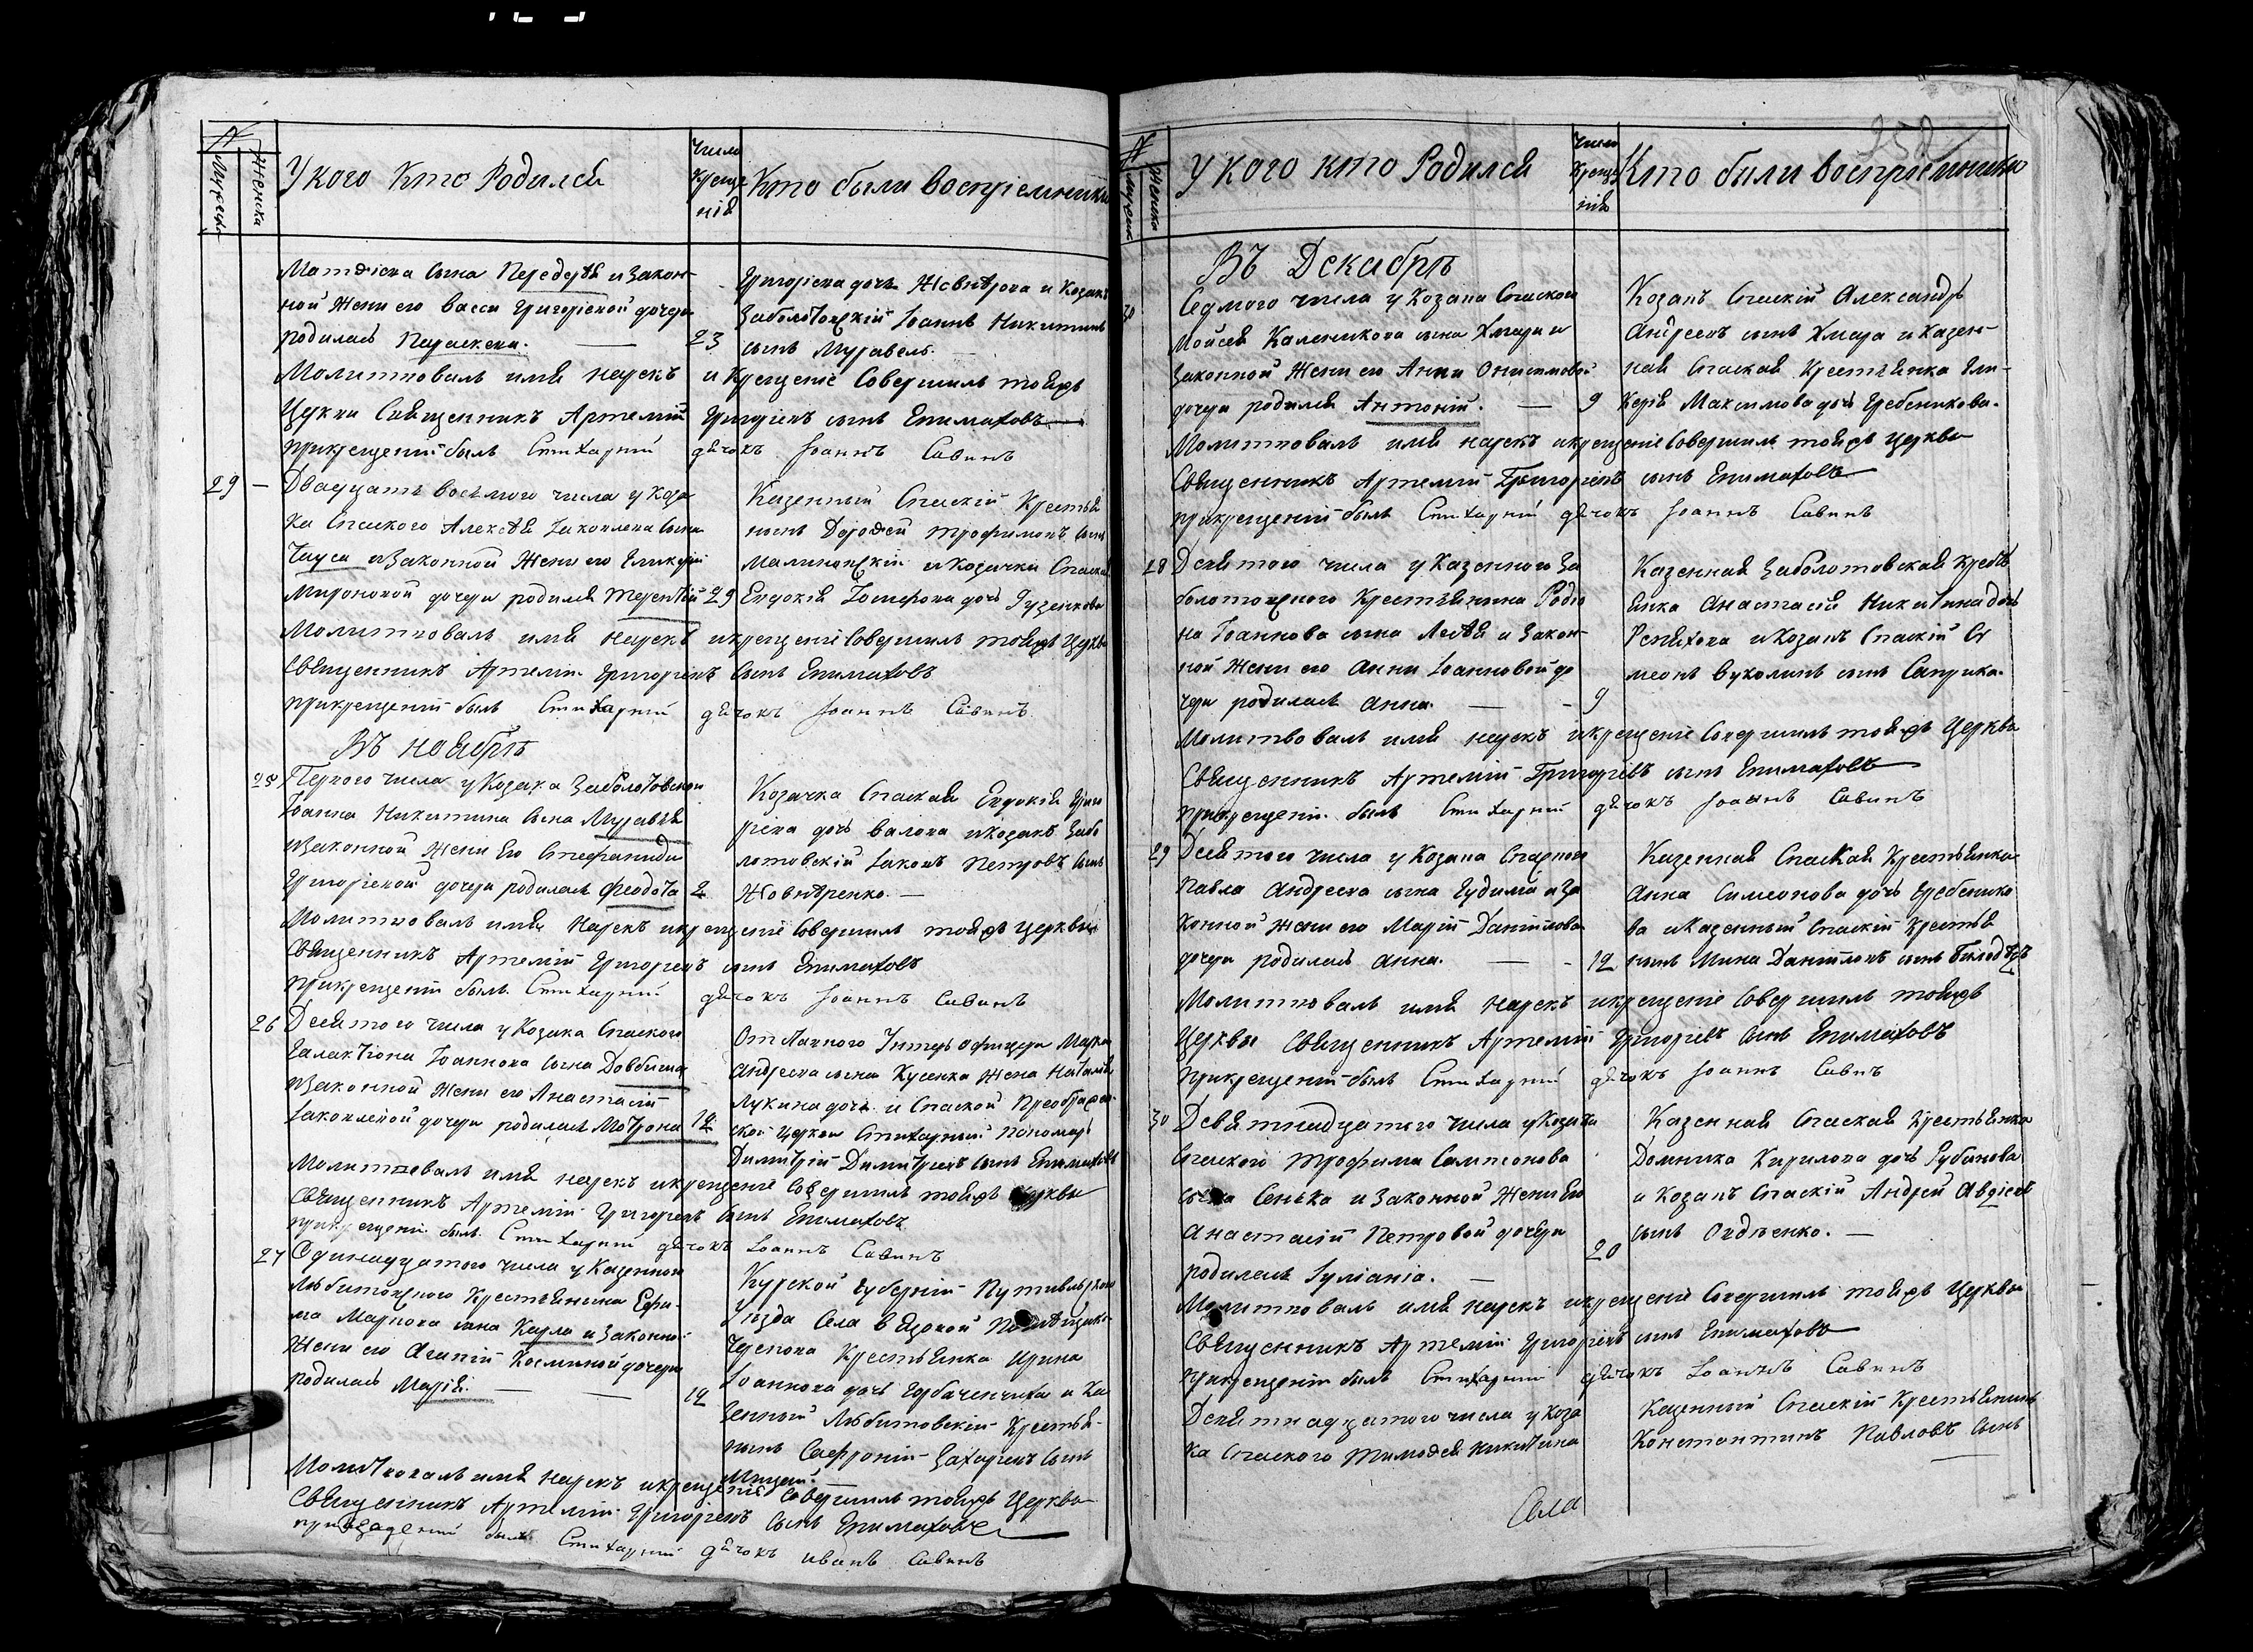 №
Мужеска
Женска
У кого Кто Родился
Число Креще нія
Кто были воспріемники
Матѳіева сына Передерѣя и Закон-
ной Жены его Вассы Григоріевой дочери
родилась Параскева. —
23
Григоріева дочь Жовнѣрова и Козакъ
Заболотовскій Іоаннъ Никитинъ
сынъ Муравель.
Молитвовалъ имя нарекъ и Крещеніе Совершилъ тояжъ
Церкви Священникъ Артемій Григоріевъ сынъ Епимаховъ
прикрещеніи былъ Стихарный дячокъ Іоаннъ Савинъ
29 —
Двадцать восьмого числа у Коза
ка Спаского Алексѣя Іаковлева Сына
Чауса и Законной Жены его Гликеріи
Мироновой дочери родился Терентій
29
Казенный Спаскій Крестья
нинъ Дороѳей Трофимовъ сынъ
Малиновскій и Козачка Спаская
Евдокія Іосифова дочь Гузенкова
Молитвовалъ имя нарекъ и крещеніе Совершилъ тояжъ Церкви
Священникъ Артемій Григоріевъ Сынъ Епимаховъ
прикрещеніи былъ Стихарный дячокъ Іоаннъ Савинъ
Въ Ноябрѣ
25
Перваго числа у Козака Заболотовского
Іоанна Никитина Сына Муравля
и Законной Жены Его Стефаниды
Григоріевой дочери родилась Феодота
2
Козачка Спаская Евдокія Григо
ріева дочь Валова и козакъ Забо
лотовскій Іаковъ Петровъ Сынъ
Жовнѣренко. —
Молитвовалъ имя Нарекъ и крещеніе Совершилъ тояжъ Церквы
Священникъ Артемій Григоріевъ сынъ Епимаховъ
прикрещеніи былъ Стихарный дячокъ Іоаннъ Савинъ
26
Десятого числа у Козака Спаского
Галактіона Іоаннова Сына Довбыша
и Законной Жены его Анастасіи
Іаковлевой дочери родилась Мотрона
12
Отставного Унтеръ Офицера Марка
Андреева сына Кусенка Жена Наталія
Лукина дочь и Спаской Преображен-
ской Церкви Стихарный Пономарь
Димитрій Димитріевъ сынъ Епимаховъ
Молитвовалъ имя нарекъ и крещеніе Совершилъ тояжъ Церквы
Священникъ Артемій Григоріевъ сынъ Епимаховъ
прикрещеніи былъ Стихарный дячокъ Іоаннъ Савинъ
27
Одинадцатого числа у Казенного
Любитовского Крестьянина Ефи-
ма Маркова сына Карла и Законной
Жены его Агапіи Косминой дочери
родилась Марія. —
12
Курской Губерніи Путивльского
Уезда Села Вязовой
Черепова Крестьянка Ирина
Іоаннова дочь Горбаченчиха и Ка
зенный Любитовскій Крестья-
нинъ Сафроній Захаріевъ Сынъ
Молитвовалъ имя нарекъ и крещеніе Совершилъ тояжъ Церквы
Священникъ Артемій Григоріевъ Сынъ Епимаховъ
былъ Стихарный дячокъ Иванъ Савинъ
352
№
Мужеска
Женска
У кого кто Родился
Число Креще нія
Кто были воспріемники
Въ Декабрѣ
30
Седмого числа у Козака Спаского
Мойсея Каленикова сына Хмары и
Законной Жены его Анны Онисимовой
дочери родился Антоній. —
9
Козакъ Спаскій Александръ
Андреевъ сынъ Хмара и Казен-
ная Спаская Крестьянка Гли-
керія Максимова дочь Гребеникова.
Молитвовалъ имя нарекъ и крещеніе Совершилъ тояжъ Церквы
Священникъ Артемій Григоріевъ сынъ Епимаховъ
прикрещеніи былъ Стихарный дячокъ Іоаннъ Савинъ
28
Десятого числа у Казенного За
болотовского Крестьянина Родіо
на Іоаннова сына Лесѣя и Закон-
ной Жены его Анны Іоанновой до
чери родилась Анна. —
9
Казенная Заболотовская Кресть
янка Анастасія Никитина дочь
и Козакъ Спаскій Си
меонъ Вуколинъ сынъ Саприка.
Молитвовалъ имя нарекъ и крещеніе Совершилъ тояжъ Церквы
Священникъ Артемій Григорьевъ сынъ Епимаховъ
прикрещеніи былъ Стихарный дячокъ Іоаннъ Савинъ
29
Десятого числа у Козака Спаского
Павла Андреева сына Гудимы и За
конной Жены его Маріи Даниловой
дочери родилась Анна. —
12
Казенная Спаская Крестьянка
Анна Симеонова дочь Гребенико
ва и Казенный Спаскій Крестья
нинъ Мина Даниловъ сынъ Белодѣдъ
Молитвовалъ имя Нарекъ и крещеніе Совершилъ тояжъ
Церквы Священникъ Артемій Григоріевъ Сынъ Епимаховъ
прикрещеніи былъ Стихарный дячокъ Іоаннъ Савинъ
30
Девятнадцатого числа у Козака
Спаского Трофима Сампсонова
сына Сенька и Законной Жены Его
Анастасіи Петровой дочери
родилась Іуліанія. —
20
Казенная Спаская Крестьянка
Домника Кирилова дочь Рубанова
и Козакъ Спаскій Андрей Авдіевъ
сынъ Овдѣенко. —
Молитвовалъ имя нарекъ и крещеніе Совершилъ тояжъ Церквы
Священникъ Артемій Григоріевъ сынъ Епимаховъ
прикрещеніи былъ Стихарный дячокъ Іоаннъ Савинъ
Девятнадцатого числа у Коза
ка Спаского Тимоѳея Никитина
Казенный Спаскій Крестьянинъ
Константинъ Павловъ Сынъ